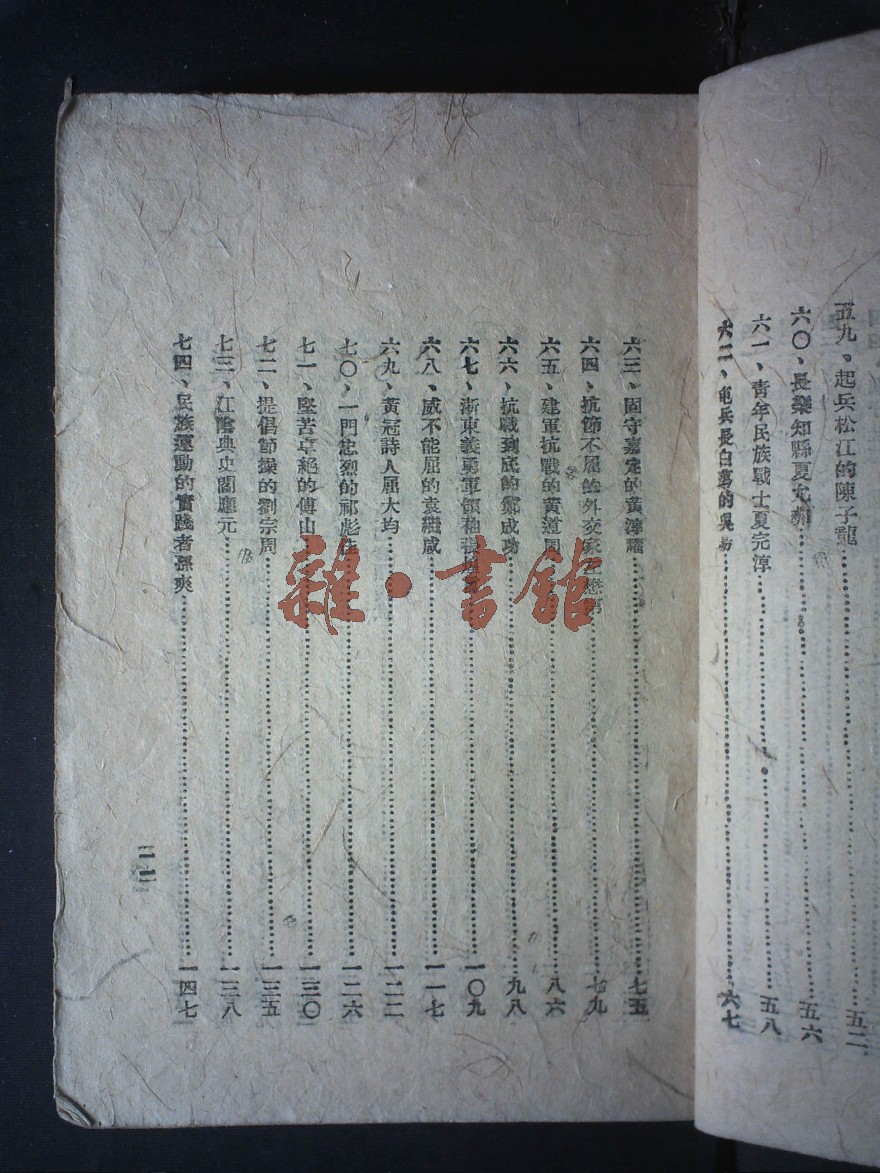 五九、起兵松江的陳子龍……五二
六〇、長樂知縣夏允彝……五六
六一、青年民族戰士夏完淳……五八
六二、長白蕩的吳昜……六七
六三、固守嘉定的黃淳耀……七五
六四、抗節不屈的外交家左懋第……七九
六五、建軍抗戰的黃道周……八六
六六、抗戰到底的鄭成功……九八
六七、浙東義勇軍領袖張……一〇九
六八、威不能屈的袁繼咸……一一七
六九、黃冠詩人屈大均……一二二
七〇、一門忠烈的祁彪佳……一二六
七一、堅苦卓絕的傅山……一三〇
七二、提倡節操的劉宗周……一三五
七三、江陰典史閻應元……一三八
七四、民族運動的實踐者孫奭……一四七
雜·書館